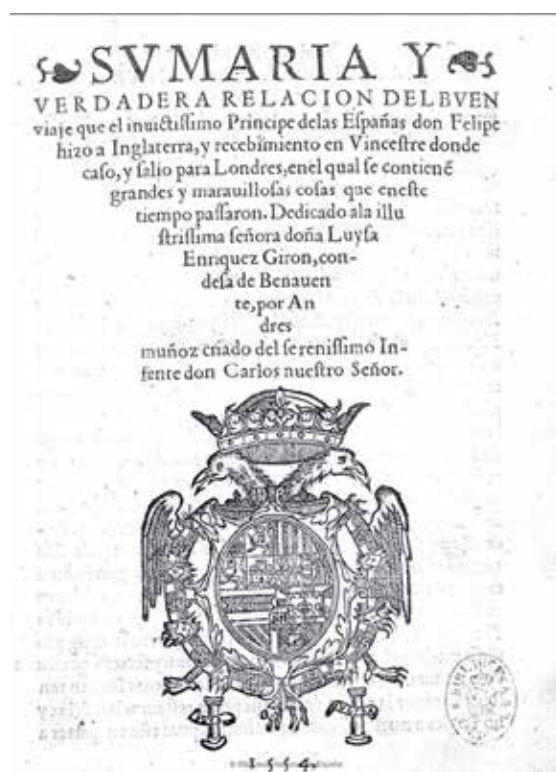 SVMARIA Y
VERDADERA RELACION DEL BVEN
viaje que el inuictissimo Principe delas Españas don Felipe
hizo a Inglaterra, y recebimiento en Vincestre donde
caso, y salio para Londres, enel qual se contienẽ
grandes y marauillosas cosas que eneste
tiempo passaron. Dedicado ala illu
strissima señora doña Luysa
Enriquez Giron, con-
desa de Benauen
te, por An
dres
muñoz criado del serenissimo In-
fente don Carlos nuestro Señor.
1554.